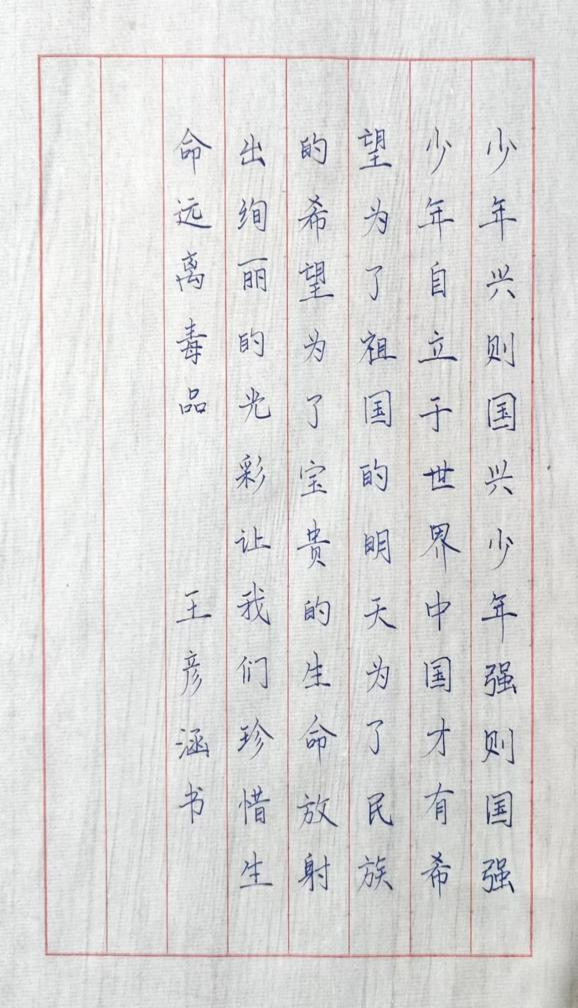 少年兴则国兴少年强则国强
少年自立于世界中国才有希
望为了祖国的明天为了民族
的希望为了宝贵的生命放射
出绚丽的光彩让我们珍惜生
命远离毒品 王彦涵书